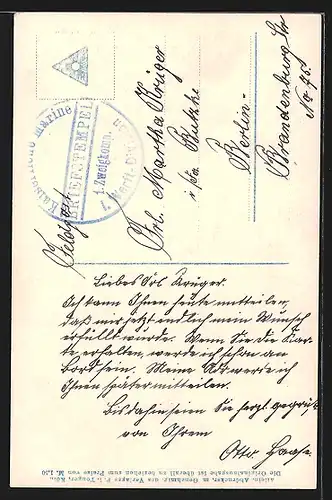 Kaiserliche Marine
BRIEFSTEMPEL
1. Zweigkomp.
1. Werft-Div.
Feldpost
Frl. Martha Krüger
i/Fa
Berlin-
Brandenburg Str
No 45.
Liebes Frl Krüger.
Ich kann Ihnen heute mitteilen,
daß mir jetzt endlich mein Wunsch
erfüllt wurde. Wenn Sie die Kar-
te erhalten, werde ich schon an
Bord sein. Meine Adr. werde ich
Ihnen später mitteilen.
Bis dahin seien Sie herzl. gegrüßt
von Ihrem
Otto Haase.
Allein. Abdruckr. m. Genehmig. des Verlages P. J. Tonger, Köln.
Die Originalausgabe ist überall zu beziehen zum Preise von M. 1.50